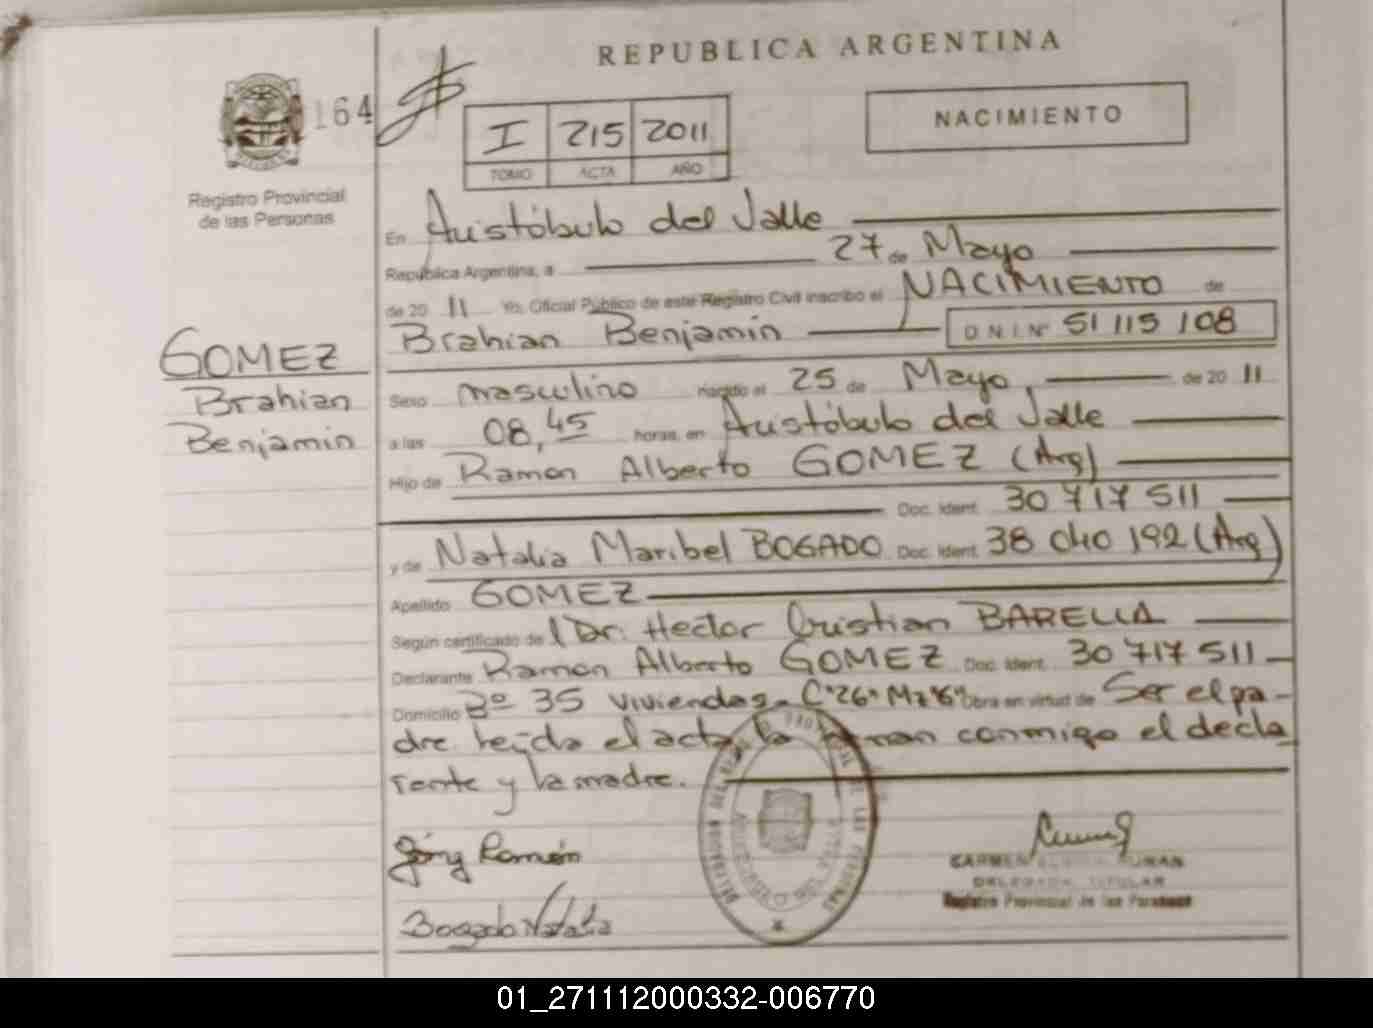 REPUBLICA ARGENTINA
164
I 215 2011
TOMO ACTA AÑO
NACIMIENTO
Registro Provincial
de las Personas
En Aristóbulo del Valle
República Argentina, a 27 de Mayo
de 20 11 Yo, Oficial Público de este Registro Civil inscribo el NACIMIENTO de
Brahian Benjamin D.N.I. Nº 51 115 108
GOMEZ
Brahian
Benjamin
Sexo masculino nacido el 25 de Mayo, de 20 11
a las 08,45 horas, en Aristóbulo del Valle
Hijo de Ramon Alberto GOMEZ (Arg)
Doc. Ident. 30 717 511
y de Natalia Maribel BOGADO Doc. Ident. 38 040 192 (Arg)
Apellido GOMEZ
Según certificado de Dr. Hector Cristian BARELLA
Declarante Ramon Alberto GOMEZ Doc. Ident. 30 717 511
Domicilio Bº 35 viviendas Obra en virtud de Ser el pa-
dre leida el acta la firman conmigo el decla
rante y la madre.
Ramón
Bogado Natalia
CARMEN
DELEGADA TITULAR
Registro Provincial de las Personas
01_271112000332-006770